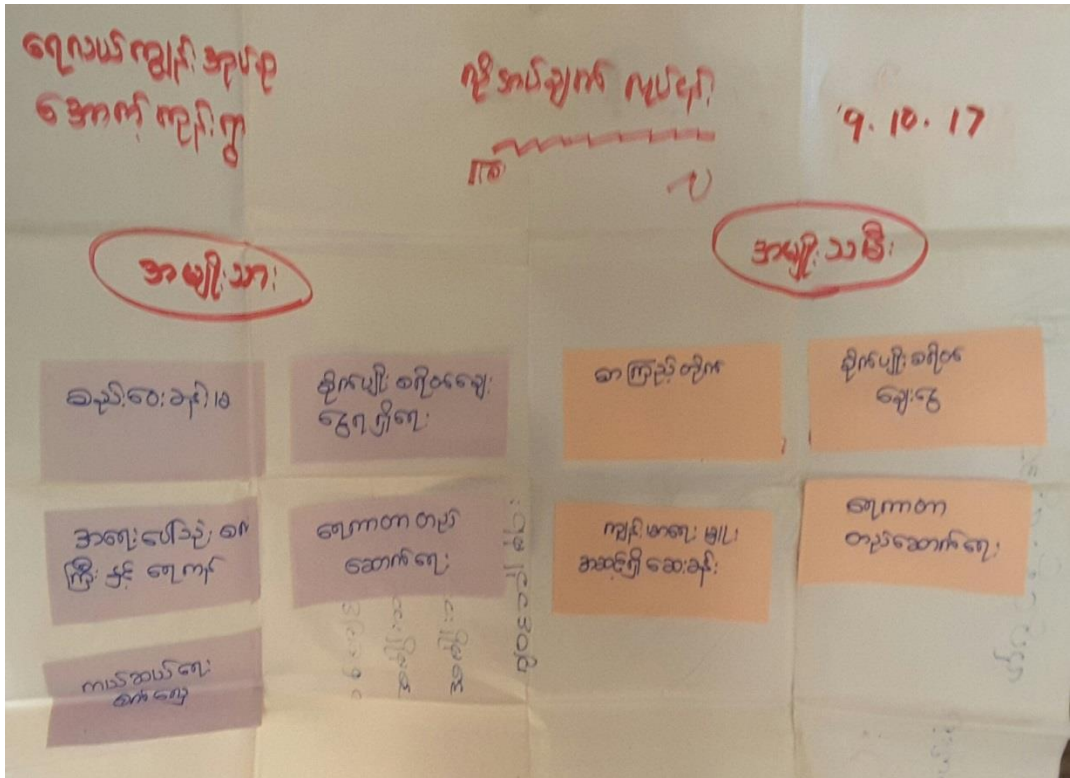 ရေလယ်ကျွန်းအုပ်စု
အောက်ကျွန်းရွာ
လိုအပ်ချက် လုပ်ငန်း
9.10.17
အမျိုးသား
အမျိုးသမီး
စည်းဝေးခန်းမ
စိုက်ပျိုးစရိတ်ချေး
ငွေရရှိရေး
စာကြည့်တိုက်
စိုက်ပျိုးစရိတ်
ချေးငွေ
အရေးပေါ်သုံး စက်
ကြီး နှင့် ရေကန်
ရေကာတာ တည်
ဆောက်ရေး
ကျန်းမာရေးမှူး
အဆင့်ရှိ ဆေးခန်း
ရေကာတာ
တည်ဆောက်ရေး
ကယ်ဆယ်ရေး
စက်လှေ